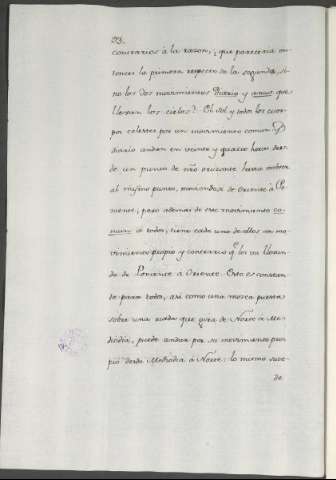 contrarios à la razon, ¿que pareceria en-
tonces la primera respecto de la segunda, si-
no los dos movimientos Diario y anuo que
llevan los cielos? El Sol y todos los cuer-
pos celestes por un movimiento comun y
diario andan en veinte y quatro horas des-
de un punto de nro orizonte hasta volver
al mismo punto, moviendose de Oriente à Po-
niente, pero ademas de este movimiento co-
mun à todos, tiene cada uno de ellos un mo-
vimiento propio y contrario q.e los va llevan-
do de Poniente à Oriente. Esto es constan-
te para todos, asi como una mosca puesta
sobre una rueda que gira de Norte à Me-
diodia, puede andar por su movimiento pro-
pio desde Mediodia à Norte: lo mismo suce-
de